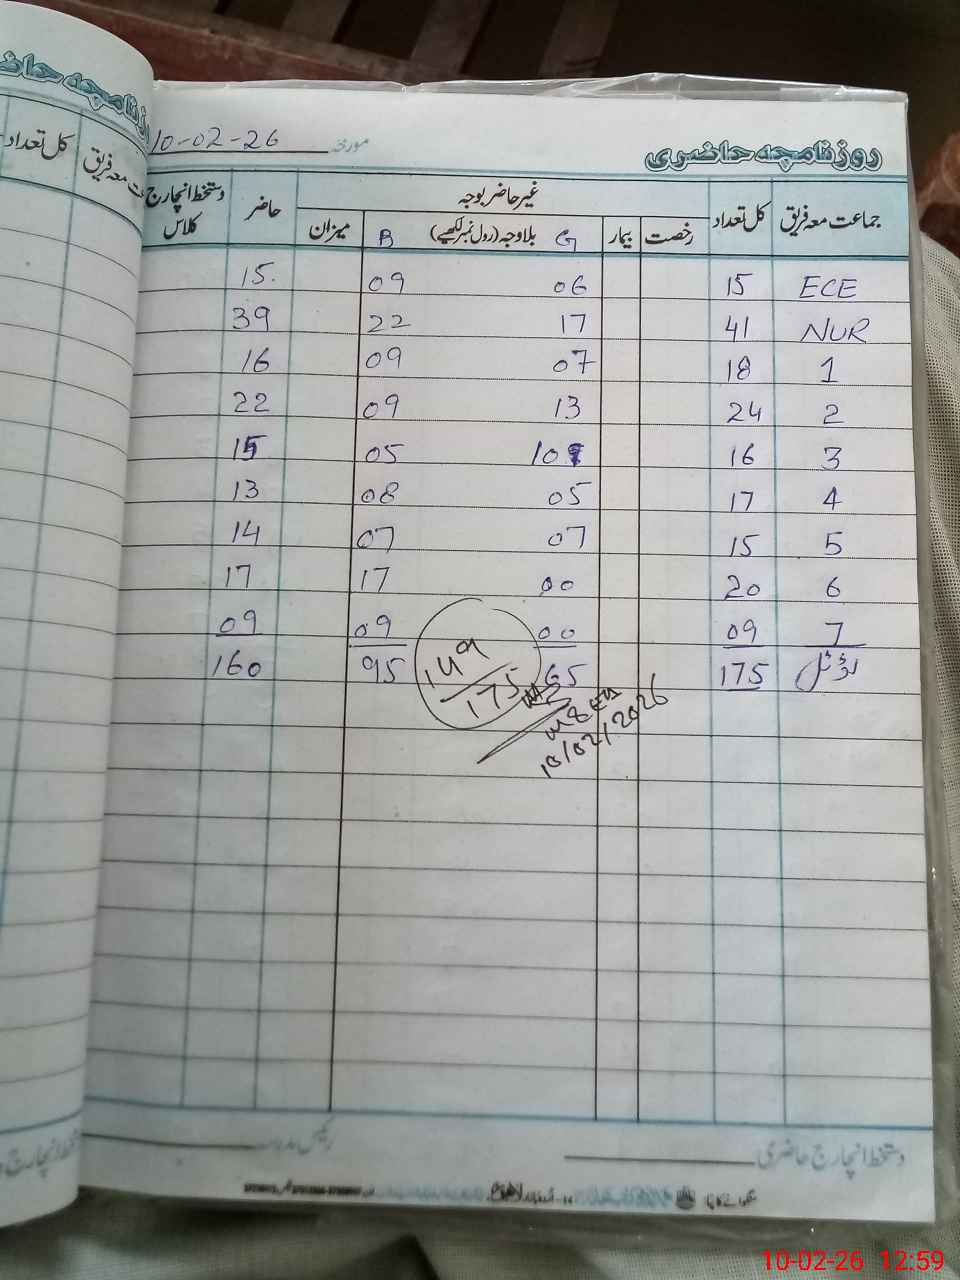 روزنامچہ حاضری
مورخہ 10-02-26
جماعت معہ فریق کل تعداد غیر حاضر بوجہ حاضر دستخط انچارج کلاس
رخصت بیمار G بلاوجہ (رول نمبر لکھیے) B میزان
ECE 15 06 09 15.
NUR 41 17 22 39
1 18 07 09 16
2 24 13 09 22
3 16 10 05 15
4 17 05 08 13
5 15 07 07 14
6 20 00 17 17
7 09 00 09 09
ٹوٹل 175 65 95 160
149
175
MEA
10/02/2026
دستخط انچارج حاضری
رئیس مدرسہ
روزنامچہ حاضری
کل تعداد
جماعت معہ فریق
دستخط انچارج
10-02-26 12:59